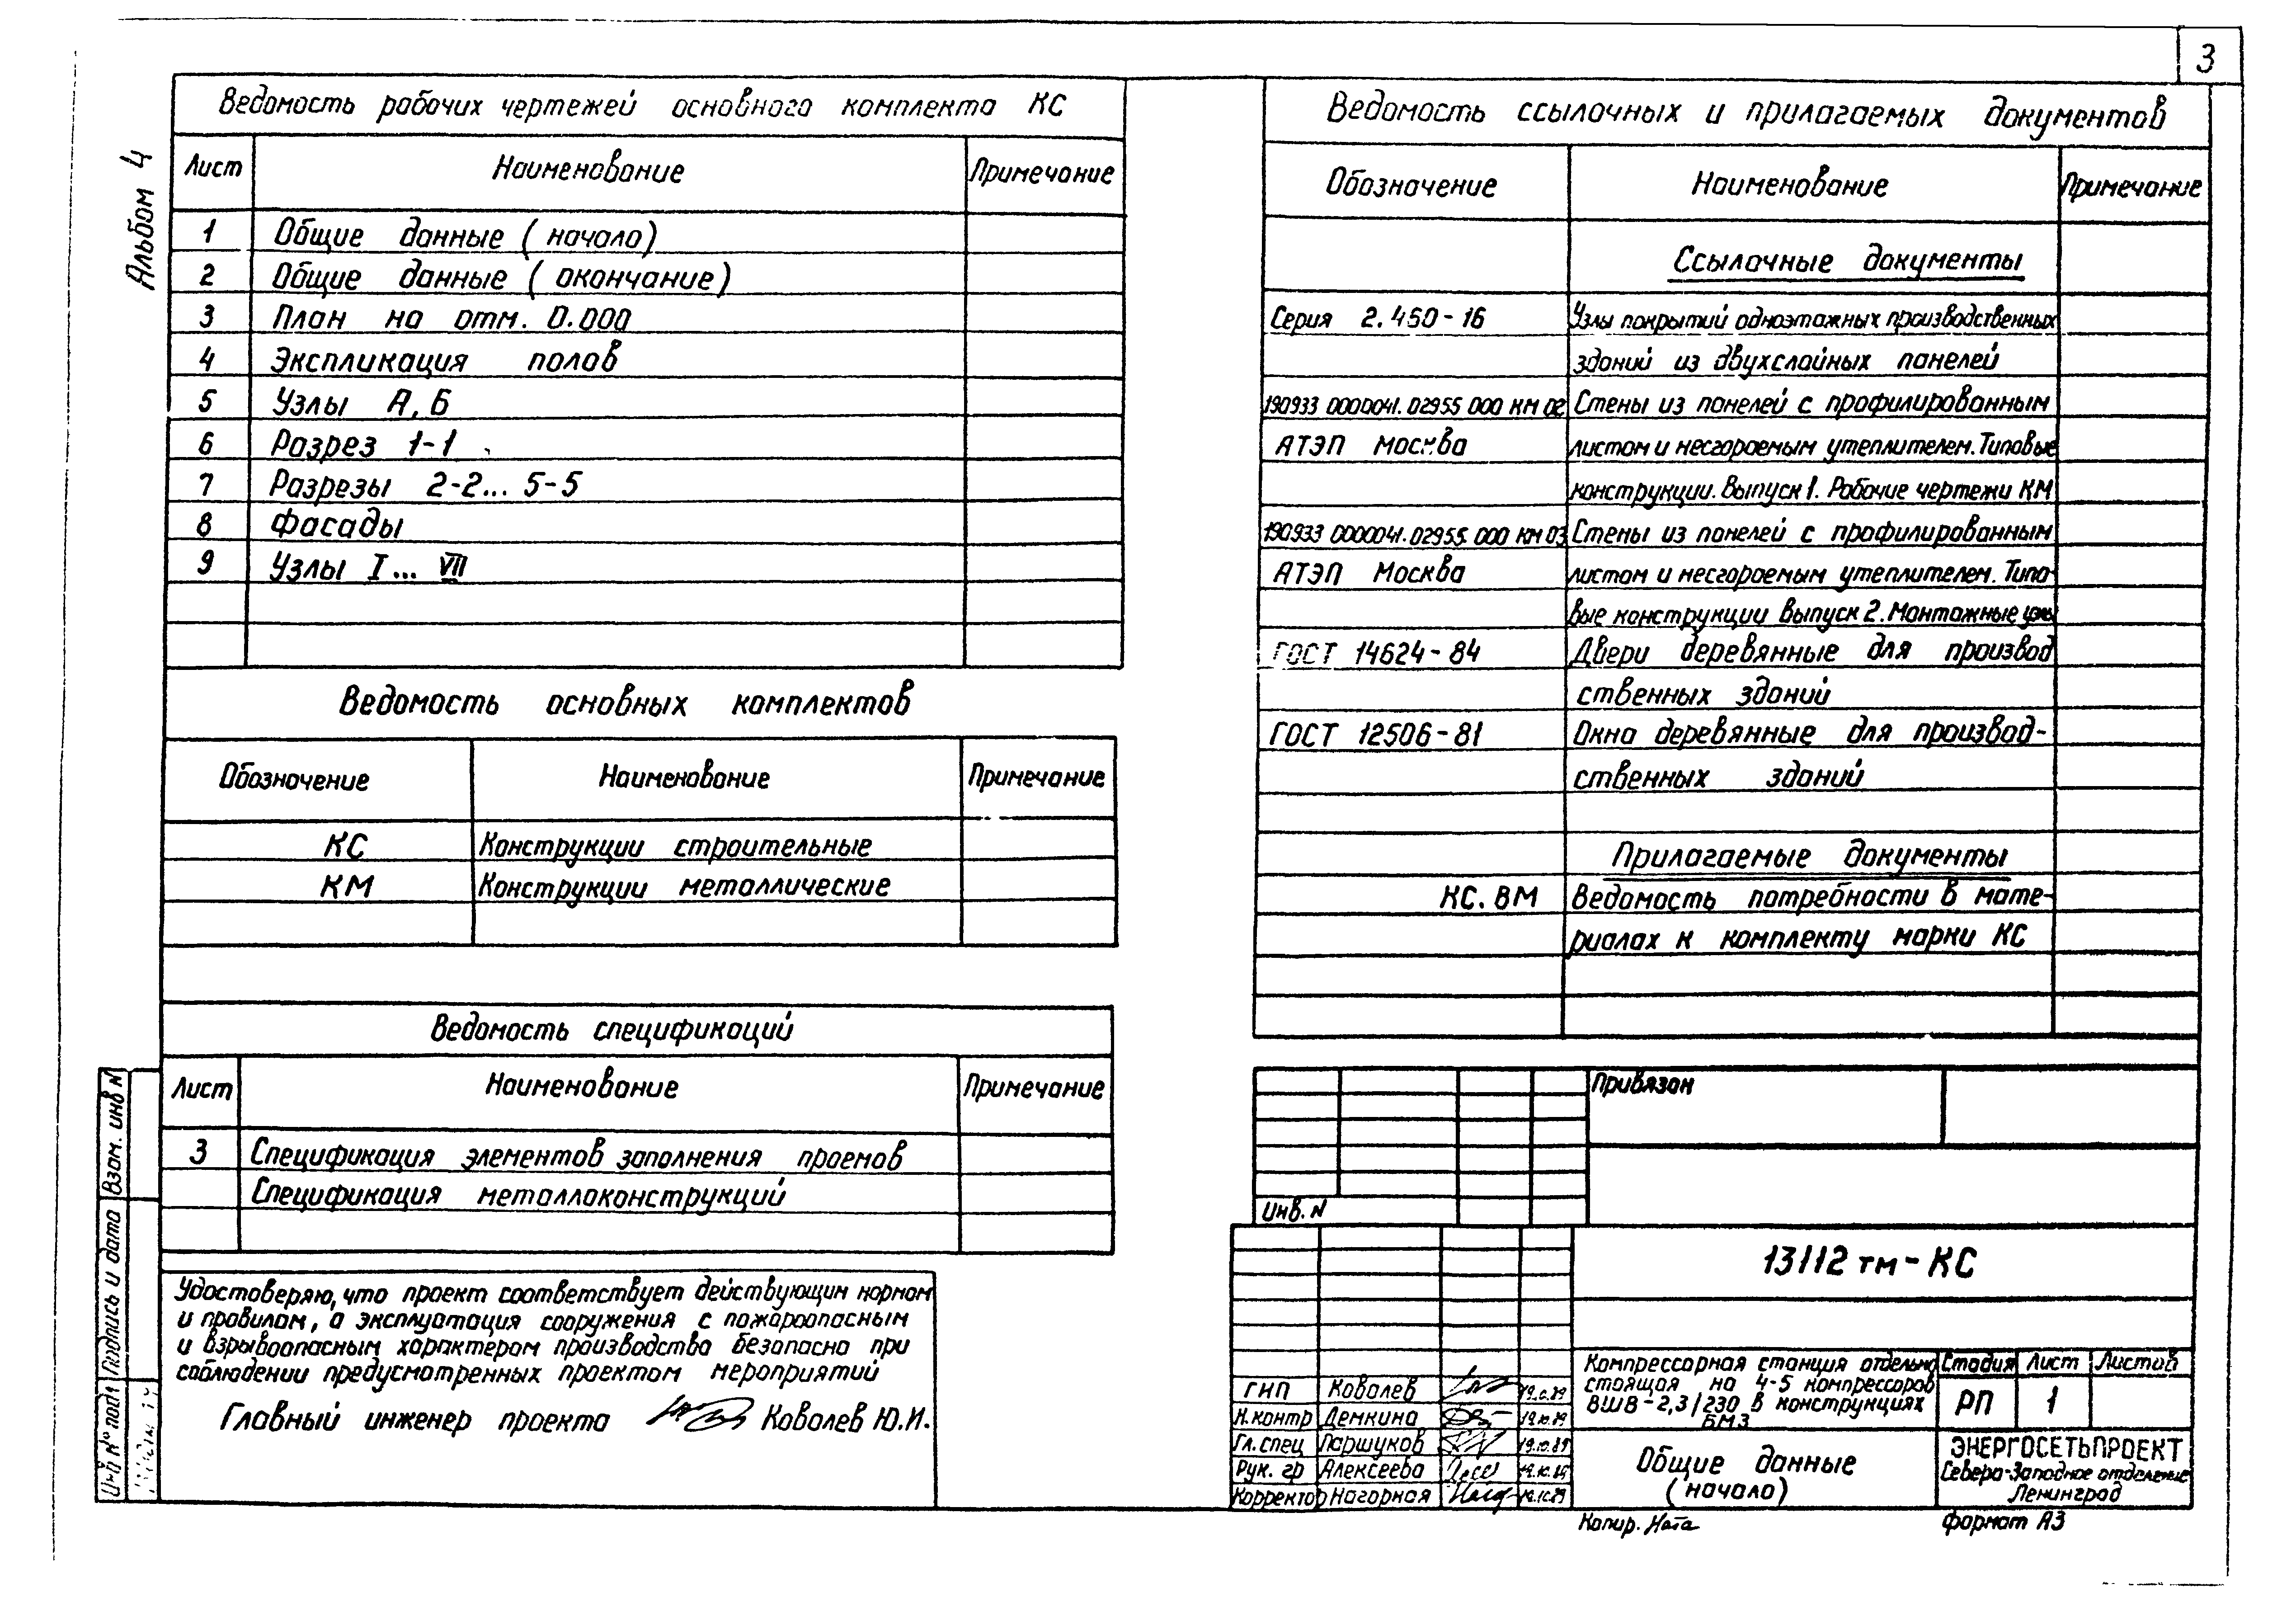 3
Альбом 4
Ведомость рабочих чертежей основного комплекта КС
Лист Наименование Примечание
1 Общие данные (начало)
2 Общие данные (окончание)
3 План на отм. 0.000
4 Экспликация полов
5 Узлы А, Б
6 Разрез 1-1
7 Разрезы 2-2... 5-5
8 Фасады
9 Узлы I... VII
Ведомость основных комплектов
Обозначение Наименование Примечание
КС Конструкции строительные
КМ Конструкции металлические
Ведомость спецификаций
Лист Наименование Примечание
3 Спецификация элементов заполнения проемов
Спецификация металлоконструкций
Удостоверяю, что проект соответствует действующим нормам
и правилам, а эксплуатация сооружения с пожароопасным
и взрывоопасным характером производства безопасна при
соблюдении предусмотренных проектом мероприятий
Главный инженер проекта Ковалев Ю.И.
Взам. инв N
Подпись и дата
Инв N° подл
Ведомость ссылочных и прилагаемых документов
Обозначение Наименование Примечание
Ссылочные документы
Серия 2.450-16 Узлы покрытий одноэтажных производственных
зданий из двухслойных панелей
190933 0000041.02955 000 КМ 02 Стены из панелей с профилированным
АТЭП Москва листом и несгораемым утеплителем. Типовые
конструкции. Выпуск 1. Рабочие чертежи КМ
190933 0000041.02955 000 КМ 03 Стены из панелей с профилированным
АТЭП Москва листом и несгораемым утеплителем. Типо-
вые конструкции Выпуск 2. Монтажные узлы
ГОСТ 14624-84 Двери деревянные для производ
ственных зданий
ГОСТ 12506-81 Окна деревянные для производ-
ственных зданий
Прилагаемые документы
КС. ВМ Ведомость потребности в мате-
риалах к комплекту марки КС
Привязан
Инв. N
13112 тм-КС
Компрессорная станция отдельно
стоящая на 4-5 компрессоров
ВШВ-2,3/230 в конструкциях
БМЗ
Стадия Лист Листов
РП 1
ГИП Ковалев
Н.контр Демкина 19.10.89
Гл.спец Паршуков 19.10.89
Рук. гр Алексеева 19.10.89
Корректор Нагорная 19.10.89
Общие данные
(начало)
ЭНЕРГОСЕТЬПРОЕКТ
Северо-Западное отделение
Ленинград
Копир. Ната
формат А3